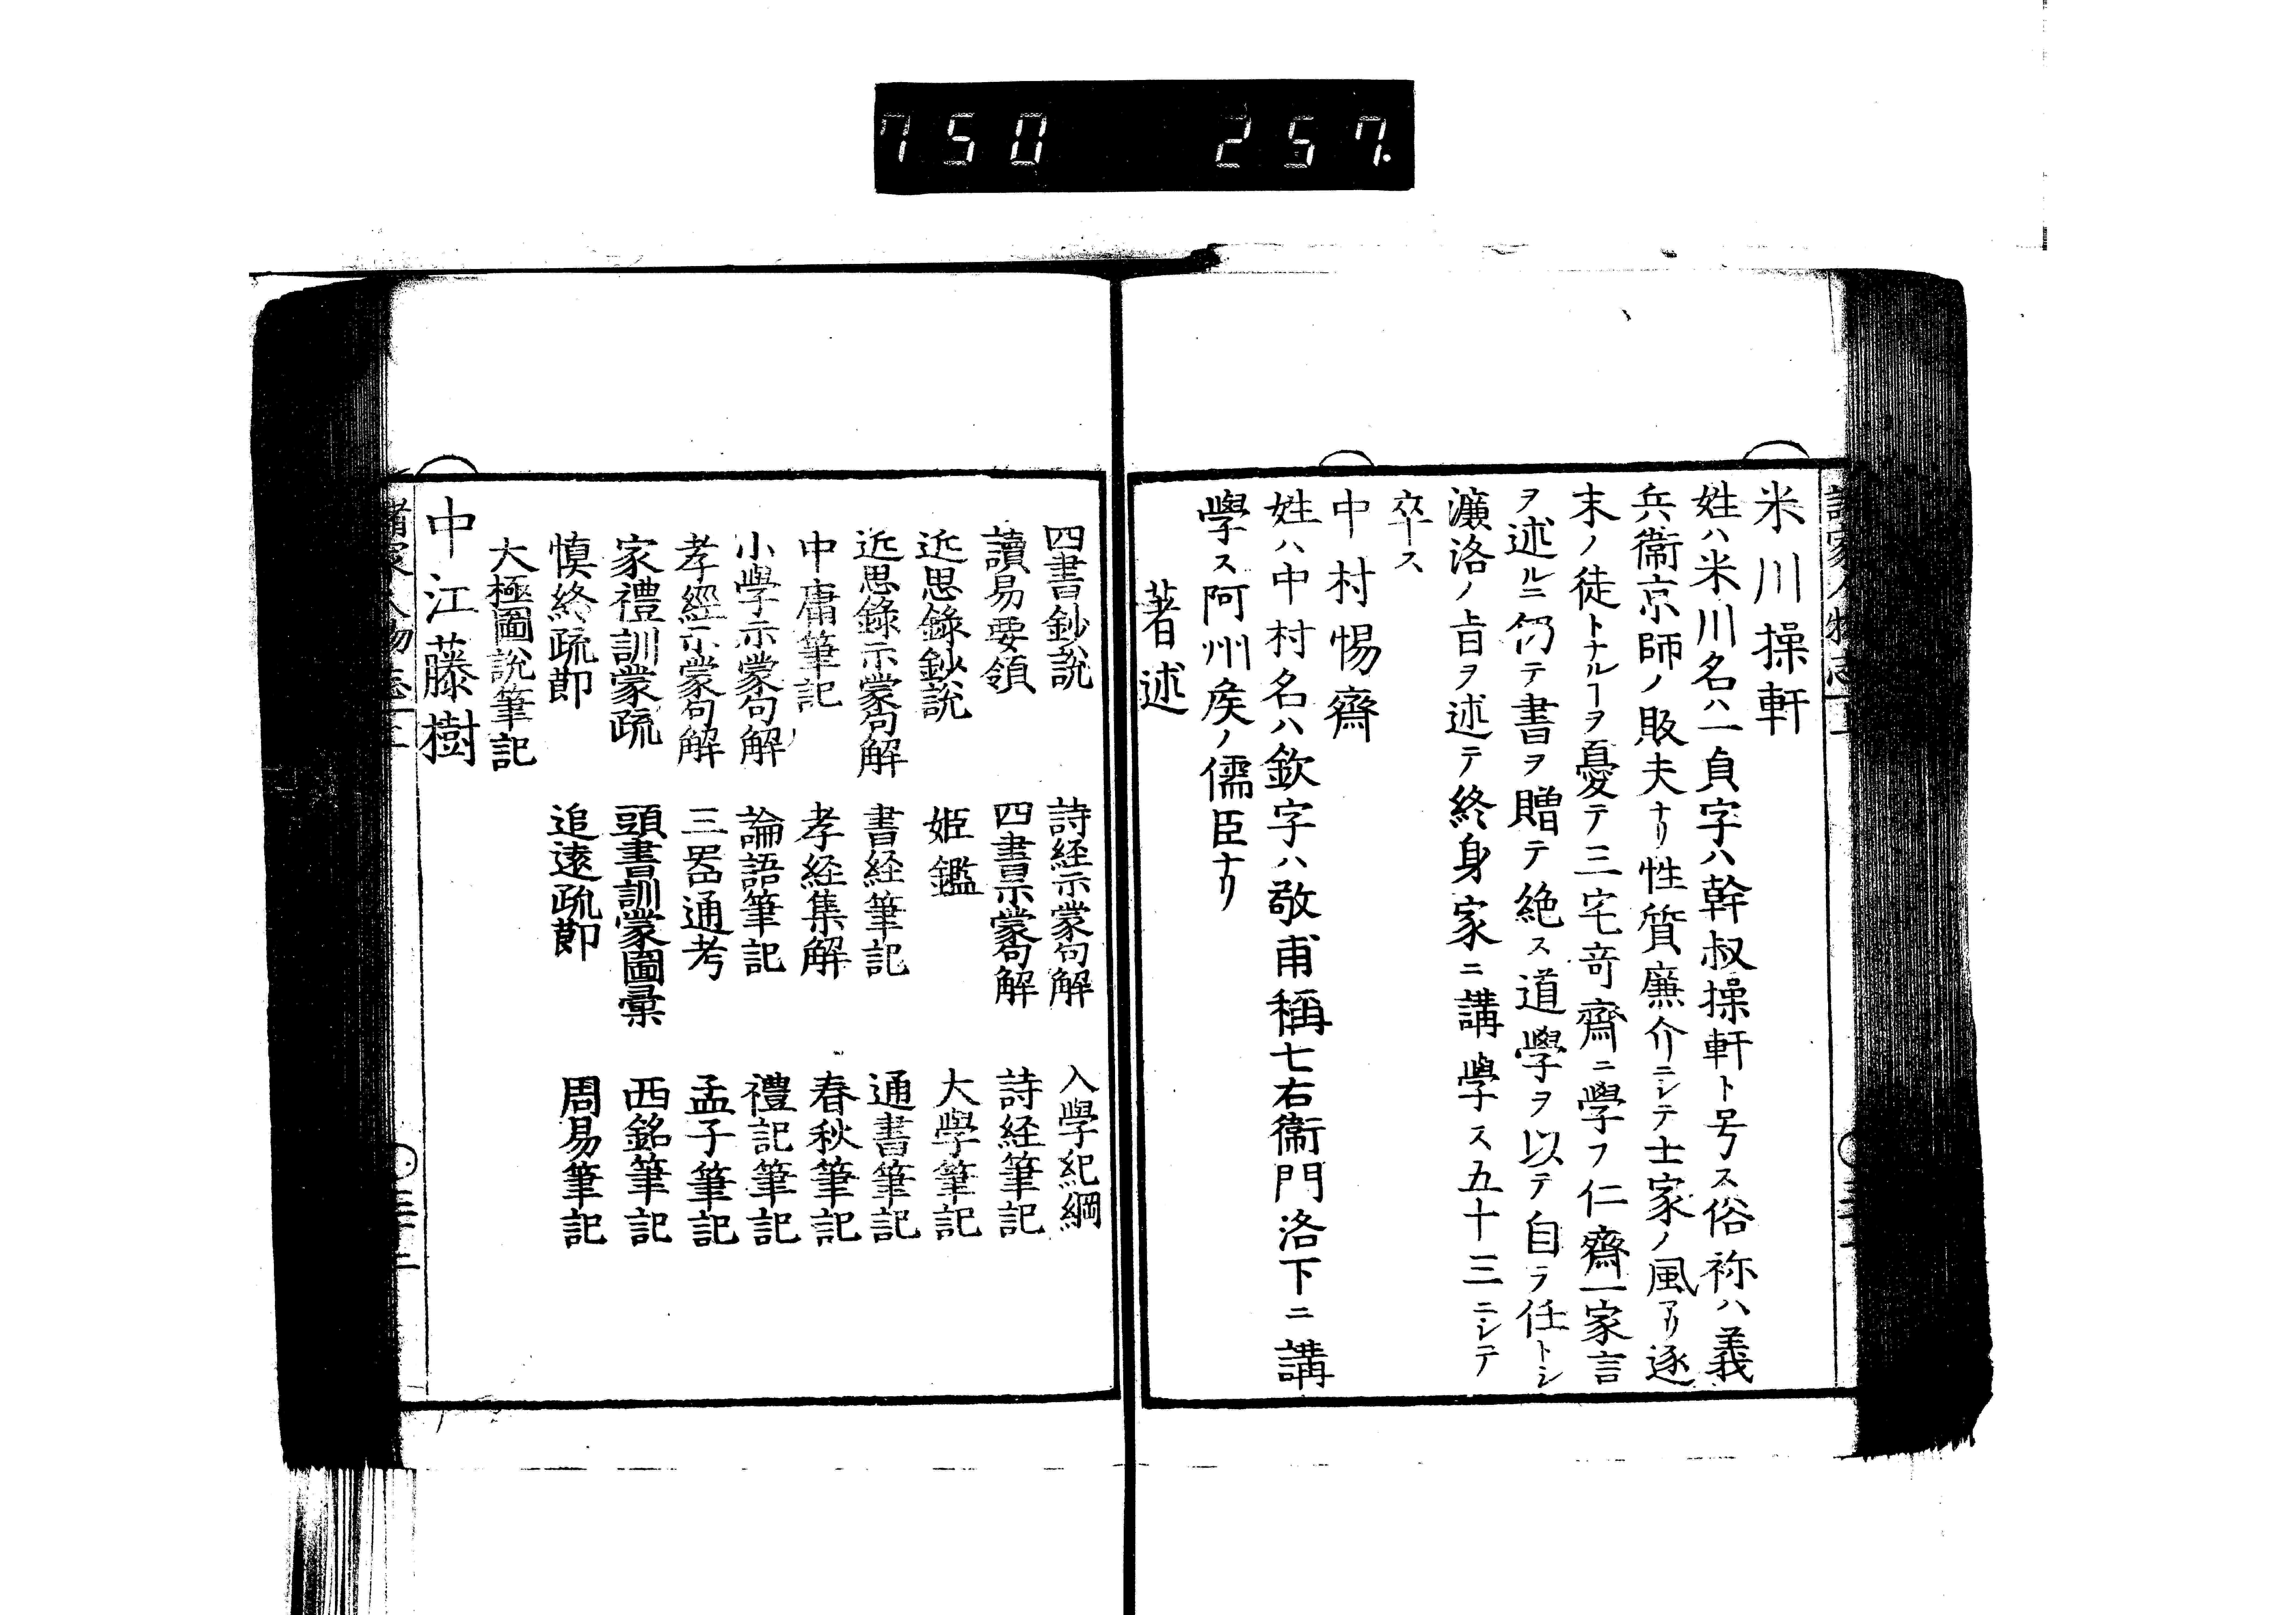 750 257.
米川操軒
姓ハ米川名ハ一貞字ハ幹叔操軒ト号ス俗称ハ義
兵衞京師ノ販夫ナリ性質廉介ニシテ士家ノ風アリ逐
末ノ徒トナルヿヲ憂テ三宅竒齋ニ學フ仁齋一家言
ヲ述ルニ仍テ書ヲ贈テ絶ス道學ヲ以テ自ラ任トシ
濂洛ノ旨ヲ述テ終身家ニ講學ス五十三ニシテ
卒ス
中村惕齋
姓ハ中村名ハ欽字ハ敬甫稱七右衞門洛下ニ講
學ス阿州矦ノ儒臣ナリ
著述
四書鈔説 詩経示蒙句解 入學紀綱
讀易要領 四書示蒙句解 詩経筆記
近思錄鈔説 姫鑑 大學筆記
近思錄示蒙句解 書経筆記 通書筆記
中庸筆記 孝経集解 春秋筆記
小學示蒙句解 論語筆記 禮記筆記
孝經示蒙句解 三噐通考 孟子筆記
家禮訓蒙疏 頭書訓蒙圖彙 西銘筆記
慎終疏節 追遠疏節 周易筆記
大極圖説筆記
中江藤樹